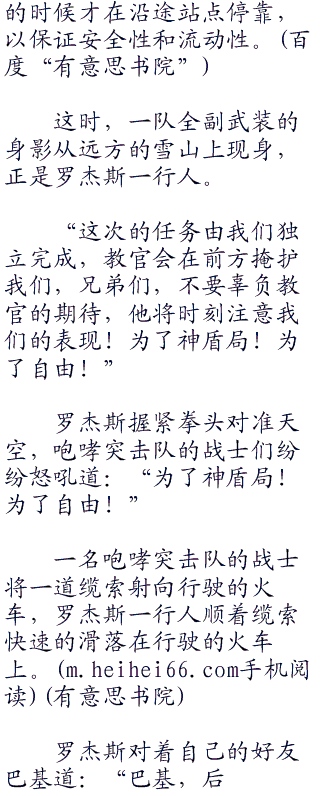 的时候才在沿途站点停靠，
以保证安全性和流动性。(百
度“有意思书院”)
这时，一队全副武装的
身影从远方的雪山上现身，
正是罗杰斯一行人。
“这次的任务由我们独
立完成，教官会在前方掩护
我们，兄弟们，不要辜负教
官的期待，他将时刻注意我
们的表现！为了神盾局！为
了自由！”
罗杰斯握紧拳头对准天
空，咆哮突击队的战士们纷
纷怒吼道：“为了神盾局！
为了自由！”
一名咆哮突击队的战士
将一道缆索射向行驶的火
车，罗杰斯一行人顺着缆索
快速的滑落在行驶的火车
上。(m.heihei66.com手机阅
读)(有意思书院)
罗杰斯对着自己的好友
巴基道：“巴基，后